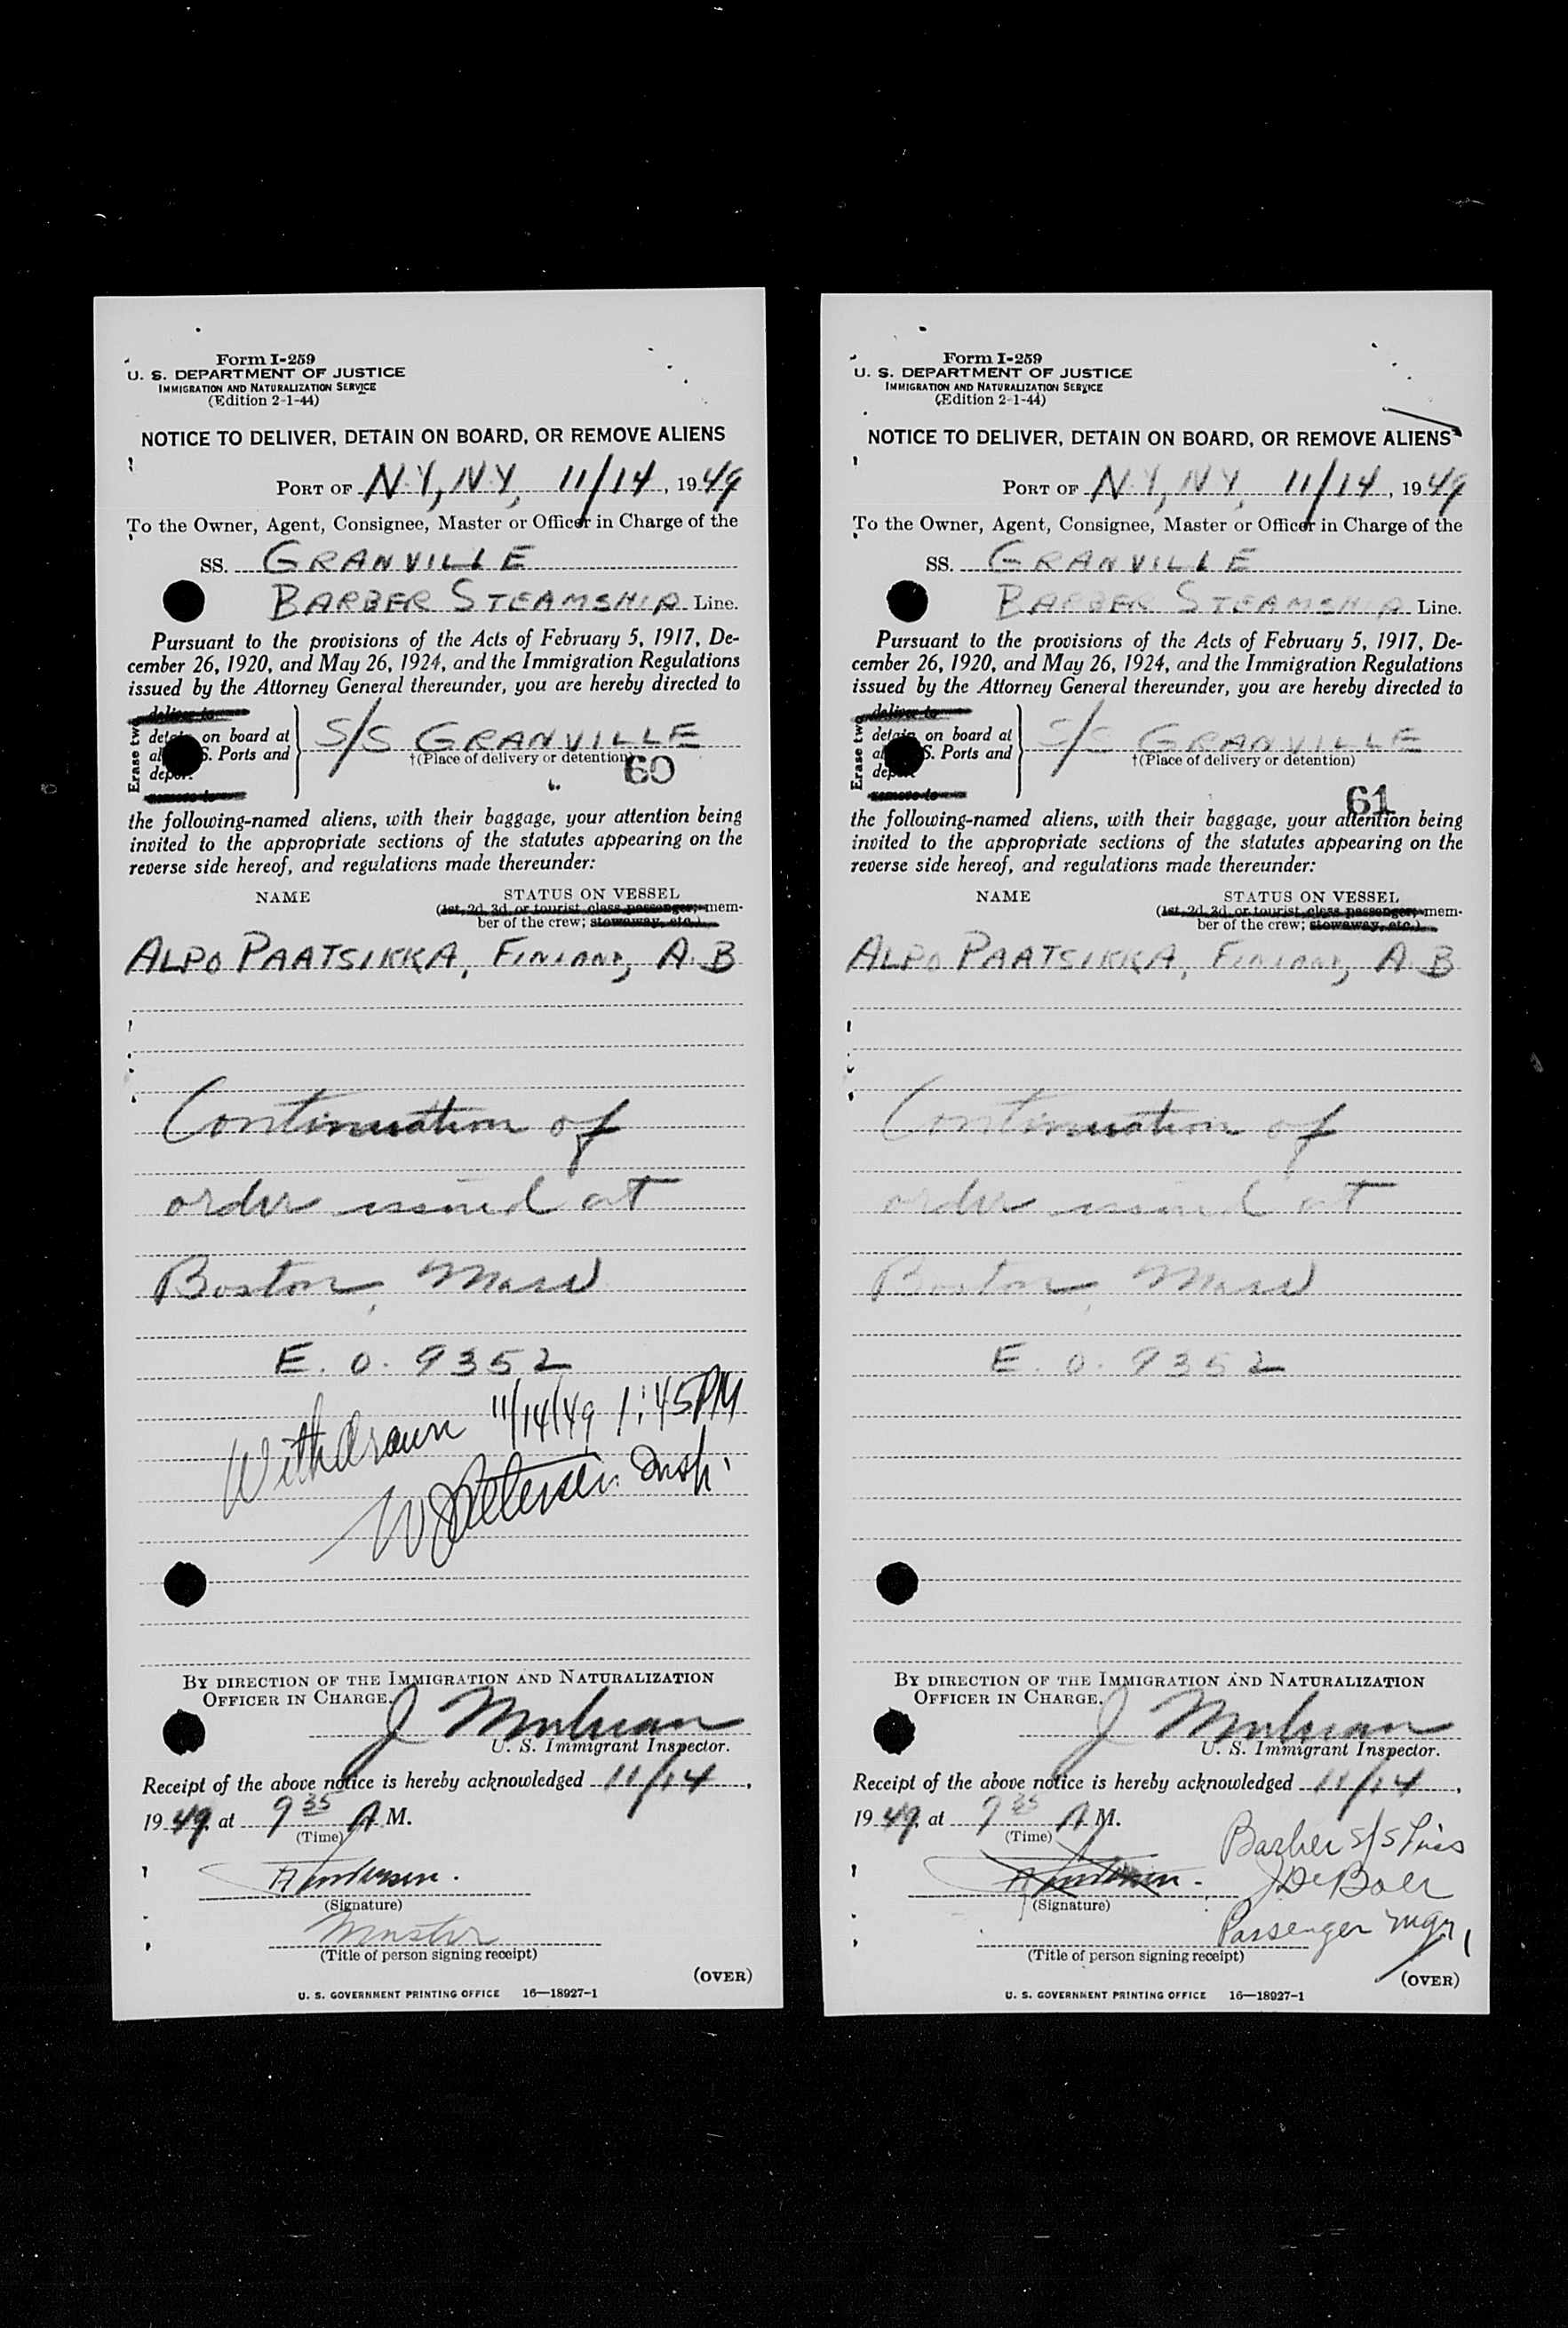 Form I-259
U. S. DEPARTMENT OF JUSTICE
IMMIGRATION AND NATURALIZATION SERVICE
(Edition 2-1-44)
NOTICE TO DELIVER, DETAIN ON BOARD, OR REMOVE ALIENS
PORT OF N.Y, N.Y, 11/14, 1949
To the Owner, Agent, Consignee, Master or Officer in Charge of the
SS. GRANVILLE
BARBER STEAMSHIP Line.
Pursuant to the provisions of the Acts of February 5, 1917, De-
cember 26, 1920, and May 26, 1924, and the Immigration Regulations
issued by the Attorney General thereunder, you are hereby directed to
Erase two
deliver to
detain on board at
al S. Ports and
depor
remove to
S/S GRANVILLE
†(Place of delivery or detention)
60
the following-named aliens, with their baggage, your attention being
invited to the appropriate sections of the statutes appearing on the
reverse side hereof, and regulations made thereunder:
NAME
STATUS ON VESSEL
(1st, 2d, 3d, or tourist class passenger; mem-
ber of the crew; stowaway, etc.)
ALPO PAATSIKKA, FINLAND, A.B
Continuation of
order issued at
Boston, Mass
E. O. 9352
Withdrawn 11/14/49 1:45PM
W Petersen Insp.
BY DIRECTION OF THE IMMIGRATION AND NATURALIZATION
OFFICER IN CHARGE.
J
U. S. Immigrant Inspector.
Receipt of the above notice is hereby acknowledged 11/14,
1949 at 9 35 A M.
(Time)
(Signature)
Master
(Title of person signing receipt)
(OVER)
U. S. GOVERNMENT PRINTING OFFICE 16—18927-1
Form I-259
U. S. DEPARTMENT OF JUSTICE
IMMIGRATION AND NATURALIZATION SERVICE
(Edition 2-1-44)
NOTICE TO DELIVER, DETAIN ON BOARD, OR REMOVE ALIENS
PORT OF N.Y, N.Y, 11/14, 1949
To the Owner, Agent, Consignee, Master or Officer in Charge of the
SS. GRANVILLE
BARBER STEAMSHIP Line.
Pursuant to the provisions of the Acts of February 5, 1917, De-
cember 26, 1920, and May 26, 1924, and the Immigration Regulations
issued by the Attorney General thereunder, you are hereby directed to
Erase two
deliver to
detain on board at
al S. Ports and
depor
remove to
S/S GRANVILLE
†(Place of delivery or detention)
61
the following-named aliens, with their baggage, your attention being
invited to the appropriate sections of the statutes appearing on the
reverse side hereof, and regulations made thereunder:
NAME
STATUS ON VESSEL
(1st, 2d, 3d, or tourist class passenger; mem-
ber of the crew; stowaway, etc.)
ALPO PAATSIKKA, FINLAND, A.B
Continuation of
order issued at
Boston, Mass
E. O. 9352
BY DIRECTION OF THE IMMIGRATION AND NATURALIZATION
OFFICER IN CHARGE.
J
U. S. Immigrant Inspector.
Receipt of the above notice is hereby acknowledged 11/14,
1949 at 9 35 A M.
(Time)
Barber S/S Lines
J De Boer
(Signature)
Passenger Mgr,
(Title of person signing receipt)
(OVER)
U. S. GOVERNMENT PRINTING OFFICE 16—18927-1